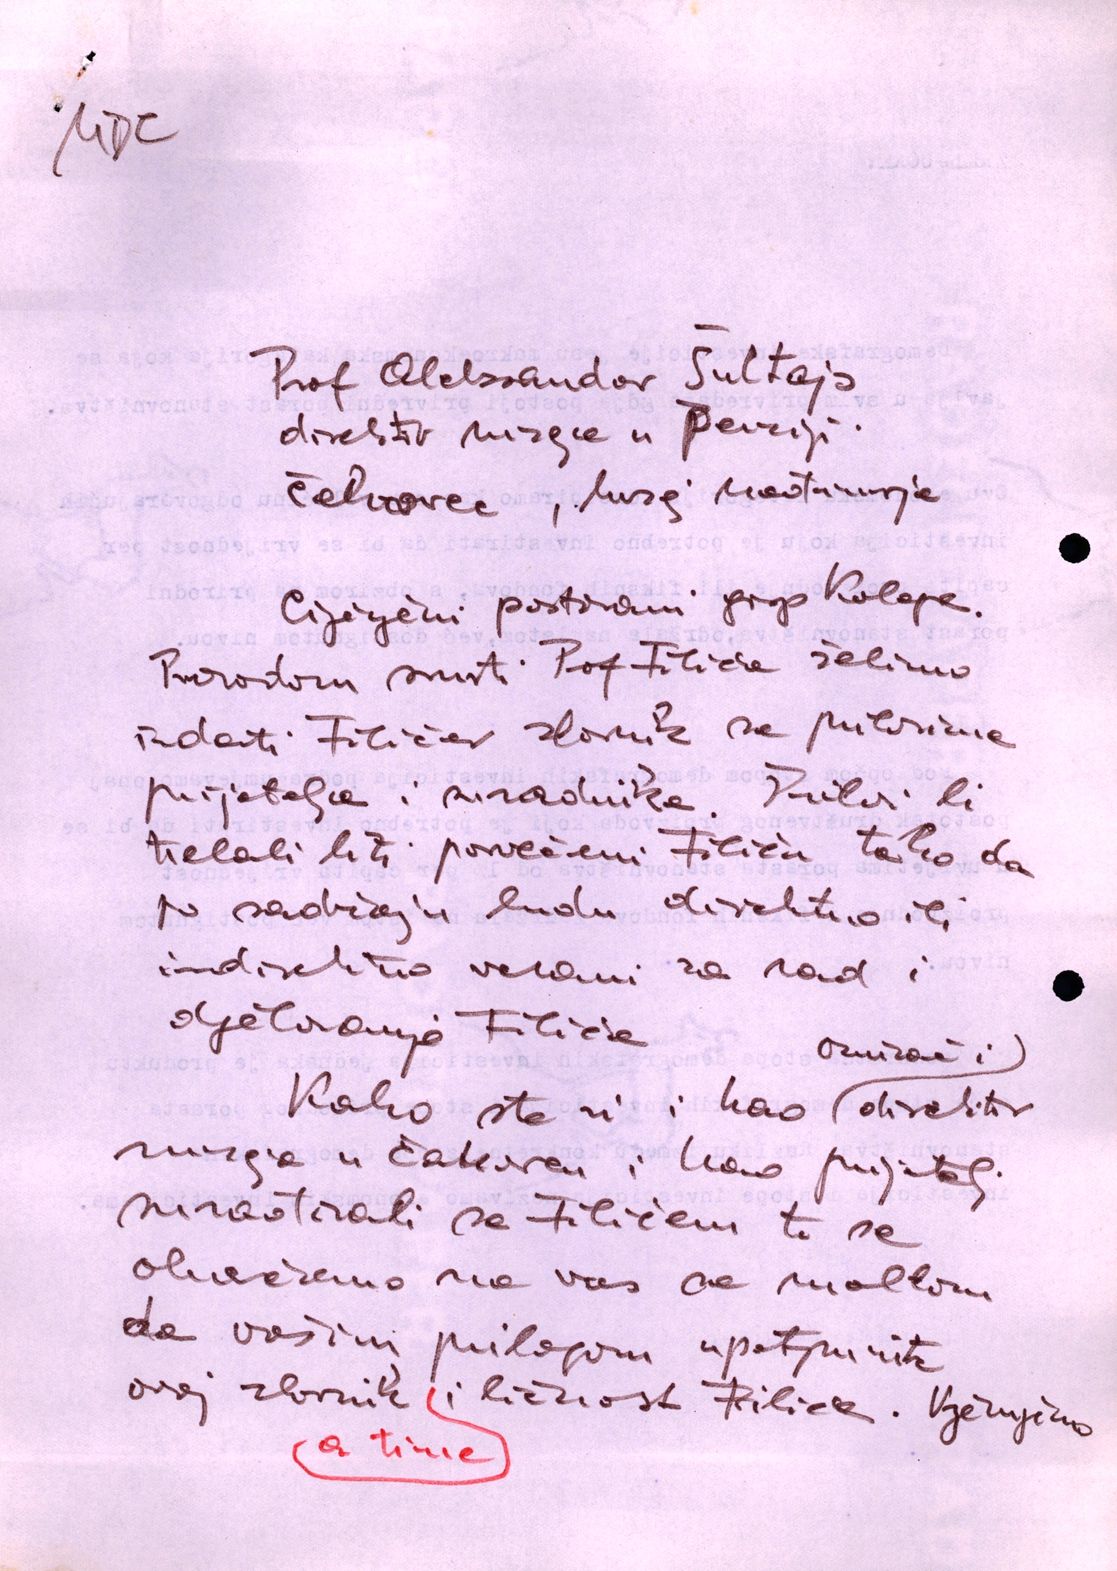 MDC
Prof Aleksandar Šultajs
direktor muzeja u penziji.
Čakovec, Muzej međimurja
Cijenjeni poštovani gosp Kolega.
Povodom smrti Prof Filića želimo
izdati Filićev zbornik sa prilozima
prijatelja i suradnika. Prilozi bi
trebali biti posvećeni Filiću tako da
po sadržaju budu direktno ili
indirektno vezani za rad i
djelovanje Filića
osnivač i
Kako ste vi i kao direktor
muzeja u Čakovcu i kao prijatelj
surađivali sa Filićem to se
obraćamo na vas sa molbom
da vašim prilogom upotpunite
ovaj zbornik i ličnost Filića. Vjerujemo
a time